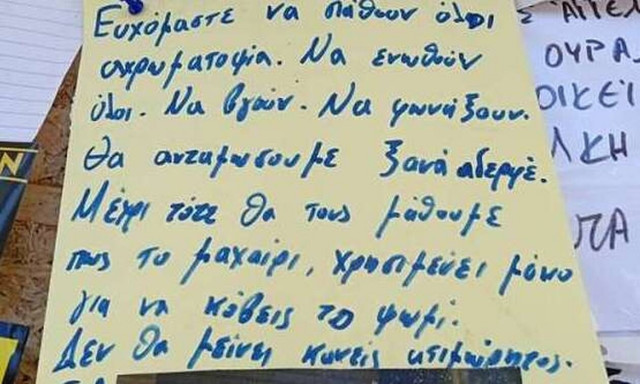 Ευχόμαστε να πάθουν όλοι
αχρωματοψία. Να ενωθούν
όλοι. Να βγούν. Να φωνάξουν.
Θα ανταμώσουμε ξανά αδερφέ.
Μέχρι τότε θα τους μάθουμε
πως το μαχαίρι, χρησιμεύει μόνο
για να κόβεις το ψωμί.
Δεν θα μείνει κανείς ατιμώρητος.
ΟΥΡΑ
ΟΙΚΕΙ